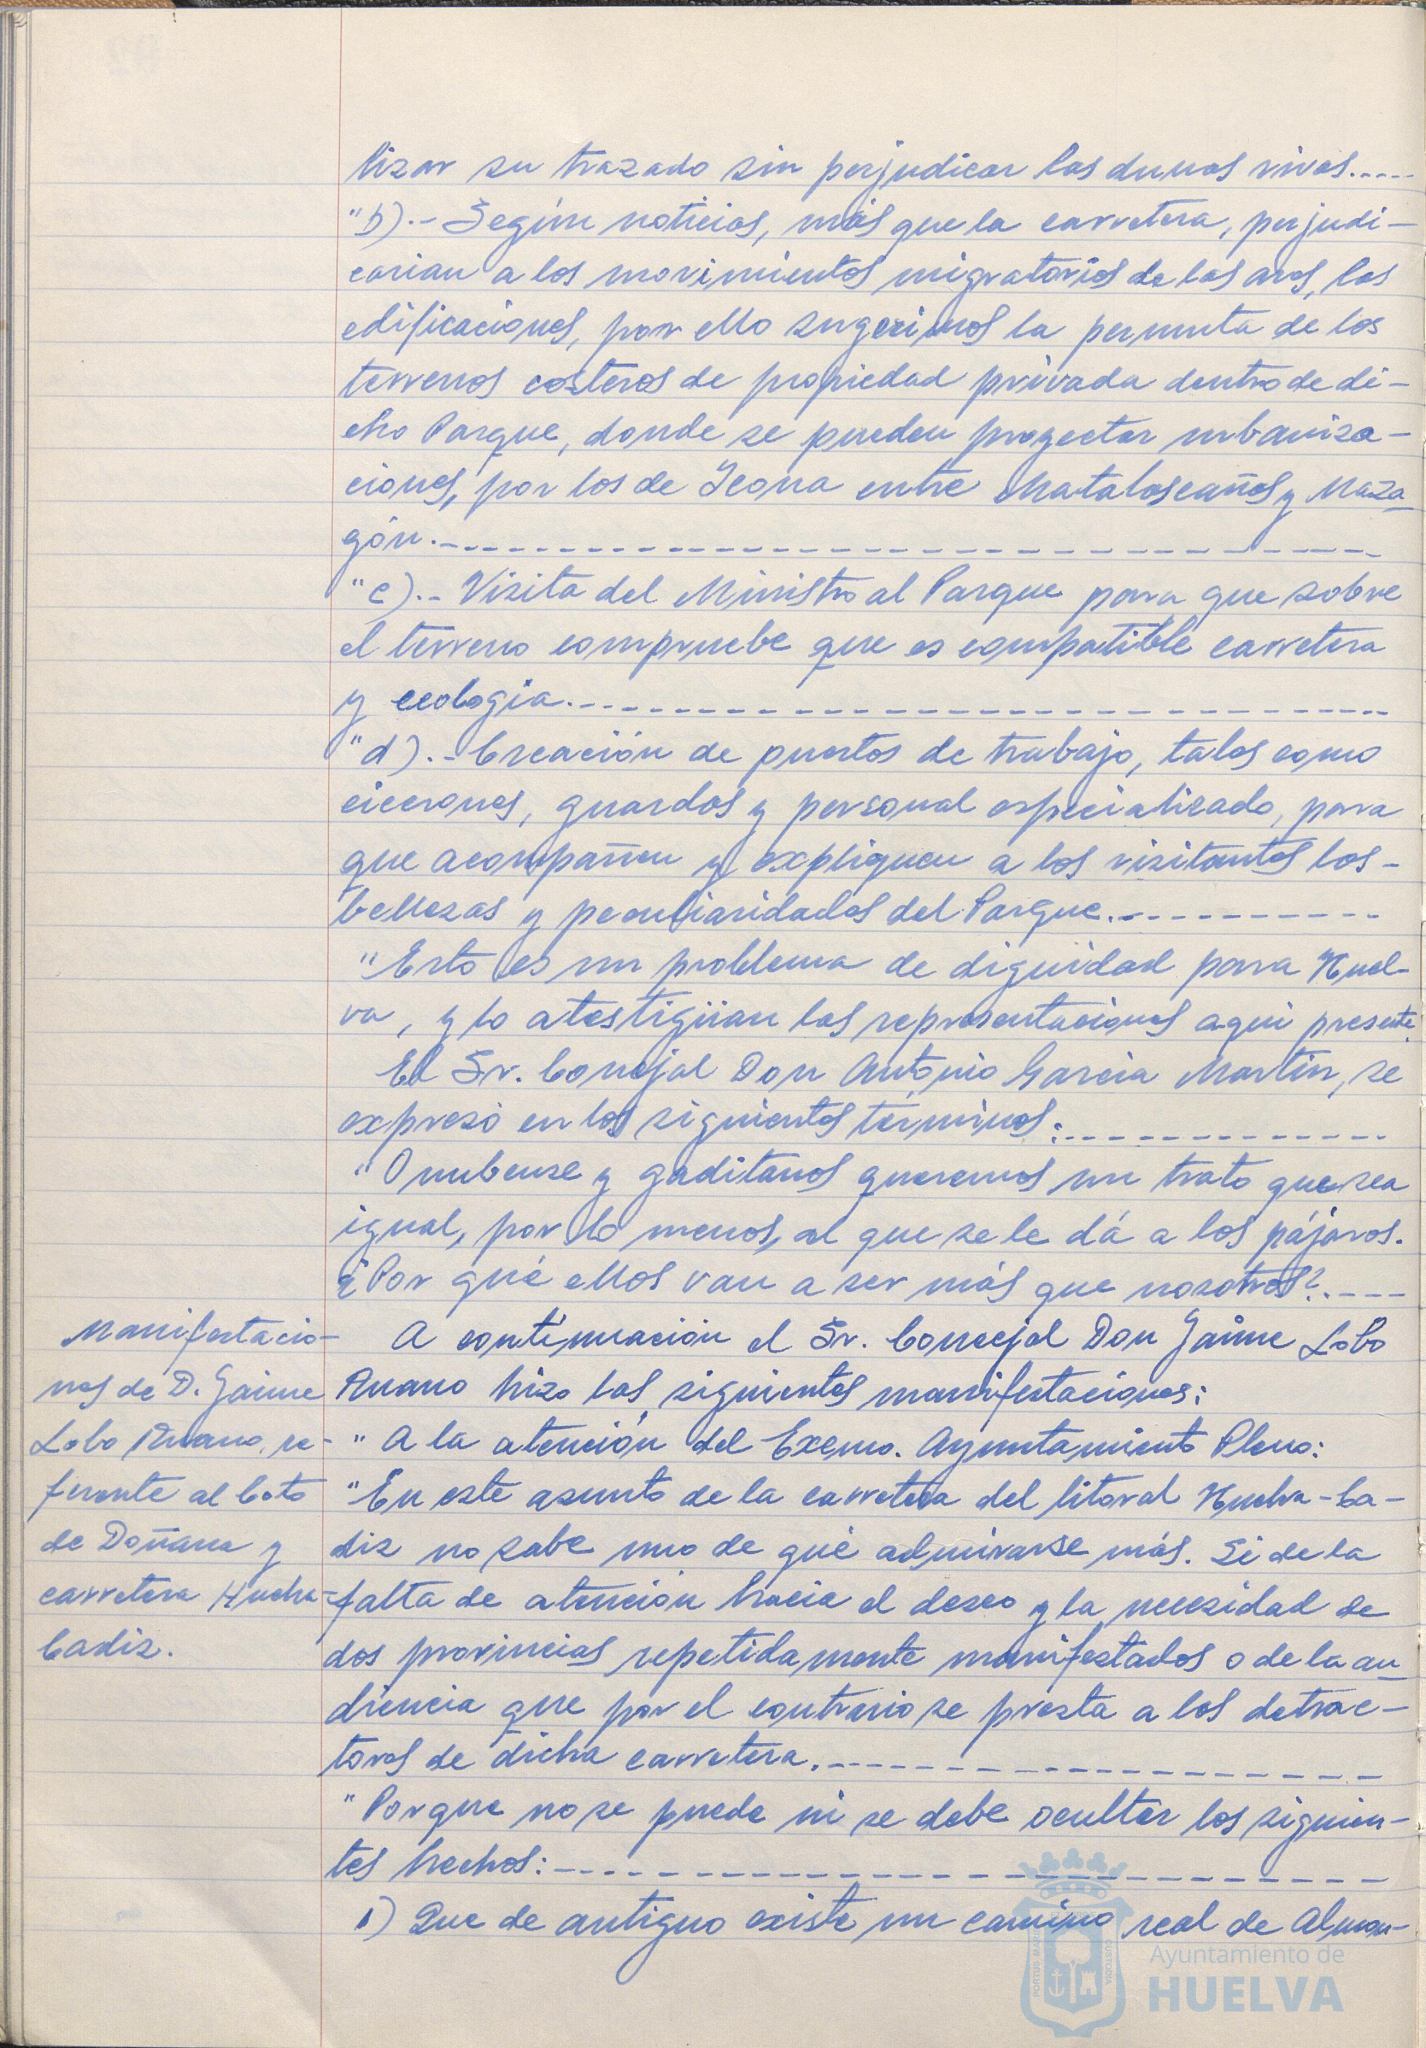 lizar su trazado sin perjudicar las dunas vivas.....
"b).- Según noticias, más que la carretera, perjudi-
carian a los movimientos migratorios de las aves, las
edificaciones, por ello sugerimos la permuta de los
terrenos costeros de propiedad privada dentro de di-
cho Parque, donde se pueden proyectar urbaniza-
ciones, por los de Icona entre Matalascañas y Maza-
gón.------------------------
"c).- Visita del Ministro al Parque para que sobre
el terreno compruebe que es compatible carretera
y ecología.------------------------
"d).- Creación de puestos de trabajo, tales como
cicerones, guardas y personal especializado, para
que acompañen y expliquen a los visitantes las-
bellezas y peculiaridades del Parque.----------
"Esto es un problema de dignidad para Huel-
va, y lo atestigüan las representaciones aquí presente.
El Sr. Concejal Don Antonio García Martín, se
expresó en los siguientes términos:------------
"Onubense y gaditanos queremos un trato que sea
igual, por lo menos, al que se le dá a los pájaros.
¿Por qué ellos van a ser más que nosotros?.----
Manifestacio-
nes de D. Jaime
Lobo Ruano, re-
ferente al Coto
de Doñana y
carretera Huelva-
Cadiz.
A continuación el Sr. Concejal Don Jaime Lobo
Ruano hizo las siguientes manifestaciones:
"A la atención del Excmo. Ayuntamiento Pleno:
"En este asunto de la carretera del litoral Huelva-Ca-
diz no sabe uno de qué admirarse más. Si de la
falta de atención hacia el deseo y la necesidad de
dos provincias repetidamente manifestados o de la au-
diencia que por el contrario se presta a los detrac-
tores de dicha carretera.------------------
"Porque no se puede ni se debe ocultar los siguien-
tes hechos:------------------------
1) Que de antiguo existe un camino real de Almon-
PORTUS MARIS
CUSTODIA
Ayuntamiento de
HUELVA